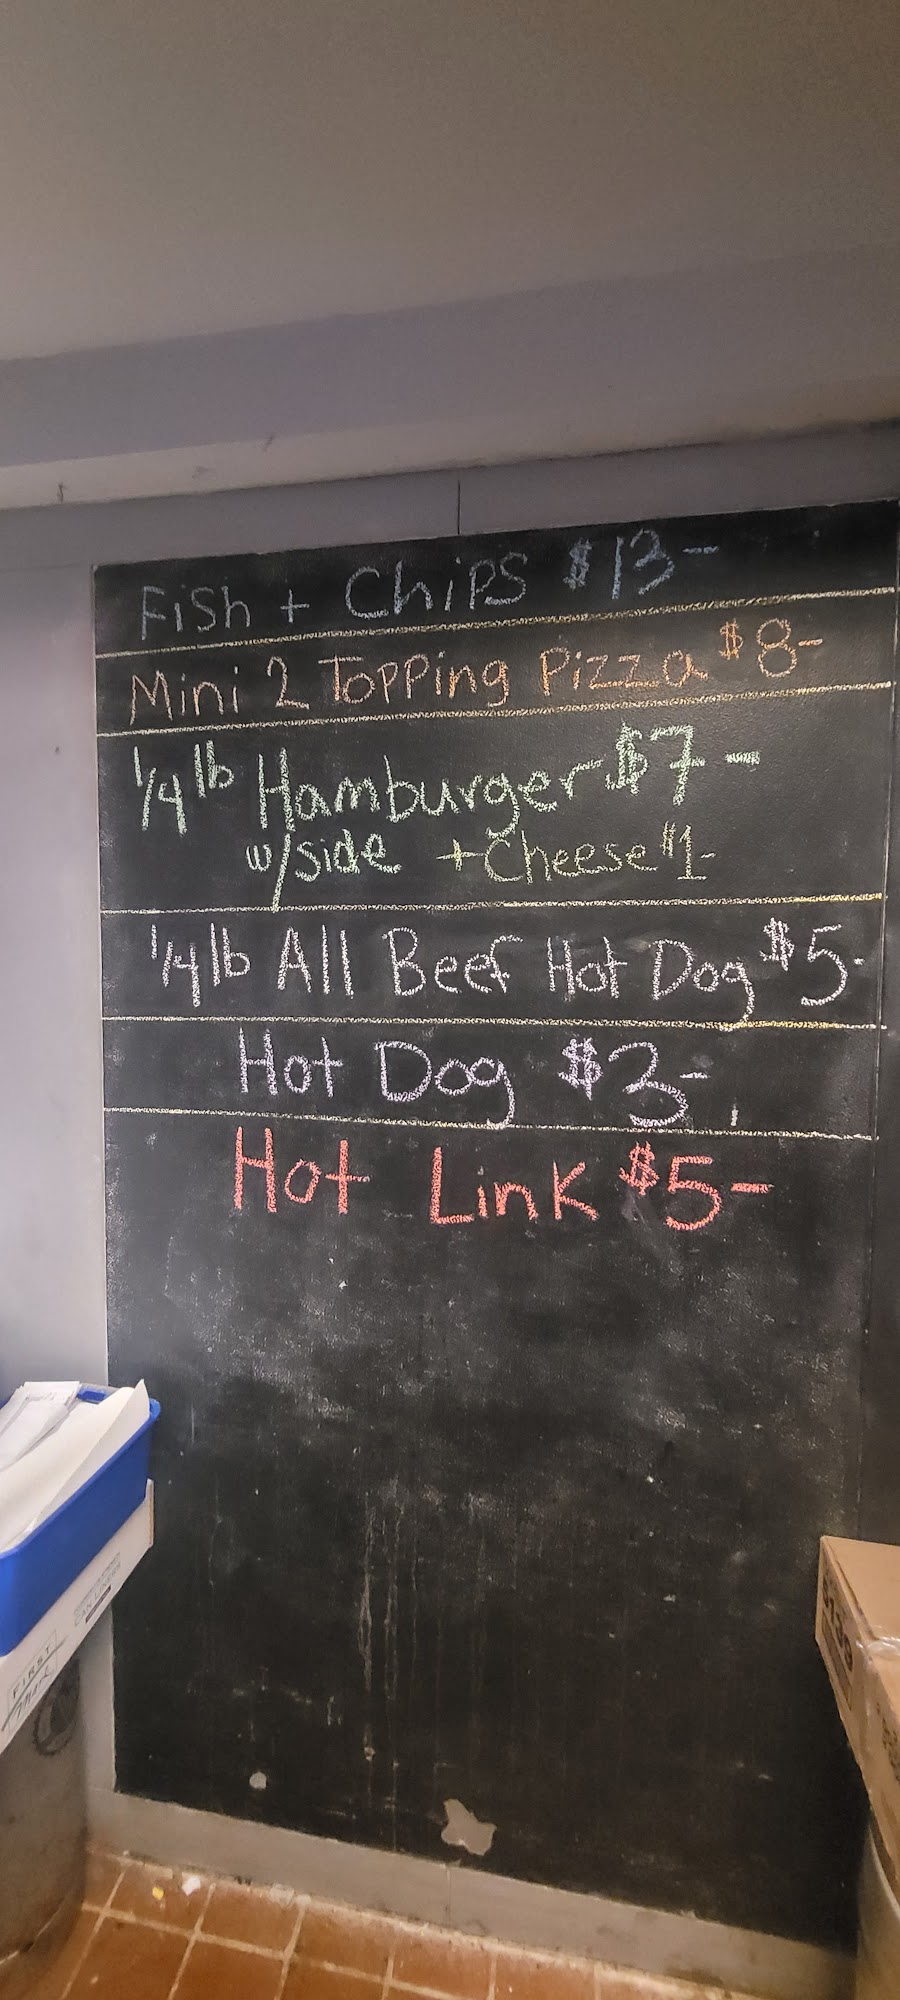 Fish + Chips $13-
Mini 2 Topping Pizza $8-
1/4 lb Hamburger $7-
w/side + Cheese $1-
1/4 lb All Beef Hot Dog $5-
Hot Dog $3-
Hot Link $5-
FIRST